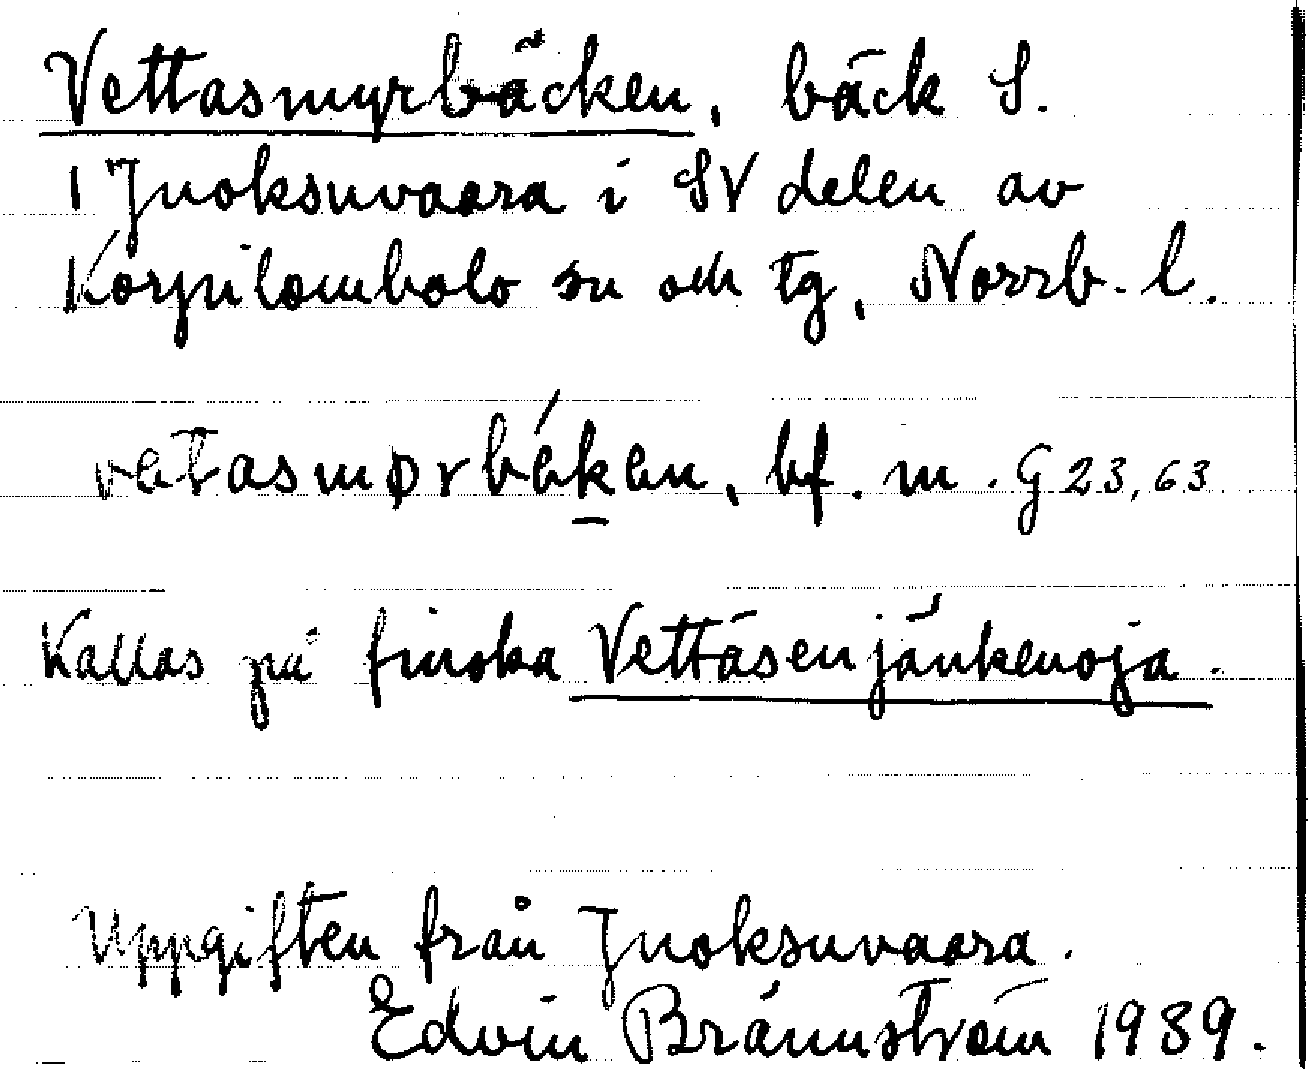 Vettasmyrbäcken, bäck S.
i Juoksuvaara i SV delen av
Korpilombolo sn och tg, Norrb. l.
vetasmørbéken, bf. m. G 23,63
Kallas på finska Vettäsenjänkenoja.
Uppgiften från Juoksuvaara.
Edvin Brännström 1989.